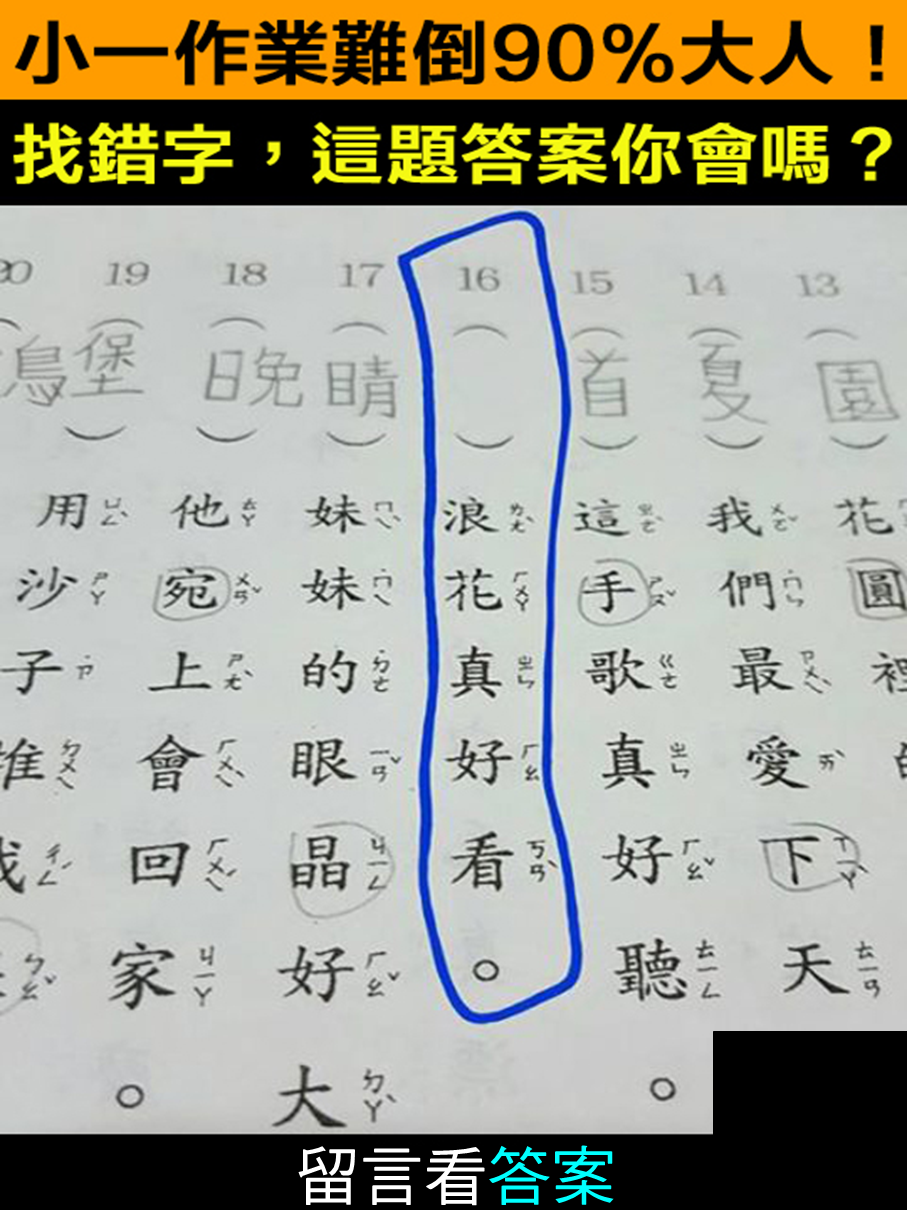 小一作業難倒90%大人！
找錯字，這題答案你會嗎？
13 (園) 花圓裡
14 (夏) 我ㄨㄛˇ們˙ㄇㄣ最ㄗㄨㄟˋ愛ㄞˋ下ㄒㄧㄚˋ天ㄊㄧㄢ
15 (首) 這ㄓㄜˋ手ㄕㄡˇ歌ㄍㄜ真ㄓㄣ好ㄏㄠˇ聽ㄊㄧㄥ。
16 ( ) 浪ㄌㄤˋ花ㄏㄨㄚ真ㄓㄣ好ㄏㄠˇ看ㄎㄢˋ。
17 (睛) 妹ㄇㄟˋ妹˙ㄇㄟ的˙ㄉㄜ眼ㄧㄢˇ晶ㄐㄧㄥ好ㄏㄠˇ大ㄉㄚˋ
18 (晚) 他ㄊㄚ宛ㄨㄢˇ上ㄕㄤˋ會ㄏㄨㄟˋ回ㄏㄨㄟˊ家ㄐㄧㄚ。
19 (堡) 用ㄩㄥˋ沙ㄕㄚ子˙ㄗ
20
留言看答案